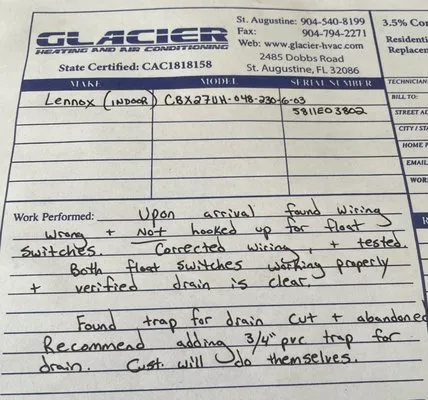 GLACIER
HEATING AND AIR CONDITIONING
State Certified: CAC1818158
St. Augustine: 904-540-8199
Fax: 904-794-2271
Web: www.glacier-hvac.com
2485 Dobbs Road
St. Augustine, FL 32086
3.5% Co
Residenti
Replacen
MAKE MODEL SERIAL NUMBER
Lennox (INDOOR) CBX27UH-048-230-6-03
5811E03802
TECHNICIAN
BILL TO:
STREET AD
CITY / STA
HOME P
EMAIL
WOR
Work Performed: Upon arrival found wiring
wrong + Not hooked up for float
switches. Corrected wiring, + tested.
Both float switches working properly
+ verified drain is clear.
Found trap for drain cut + abandoned
Recommend adding 3/4" pvc trap for
drain. Cust. will do themselves.